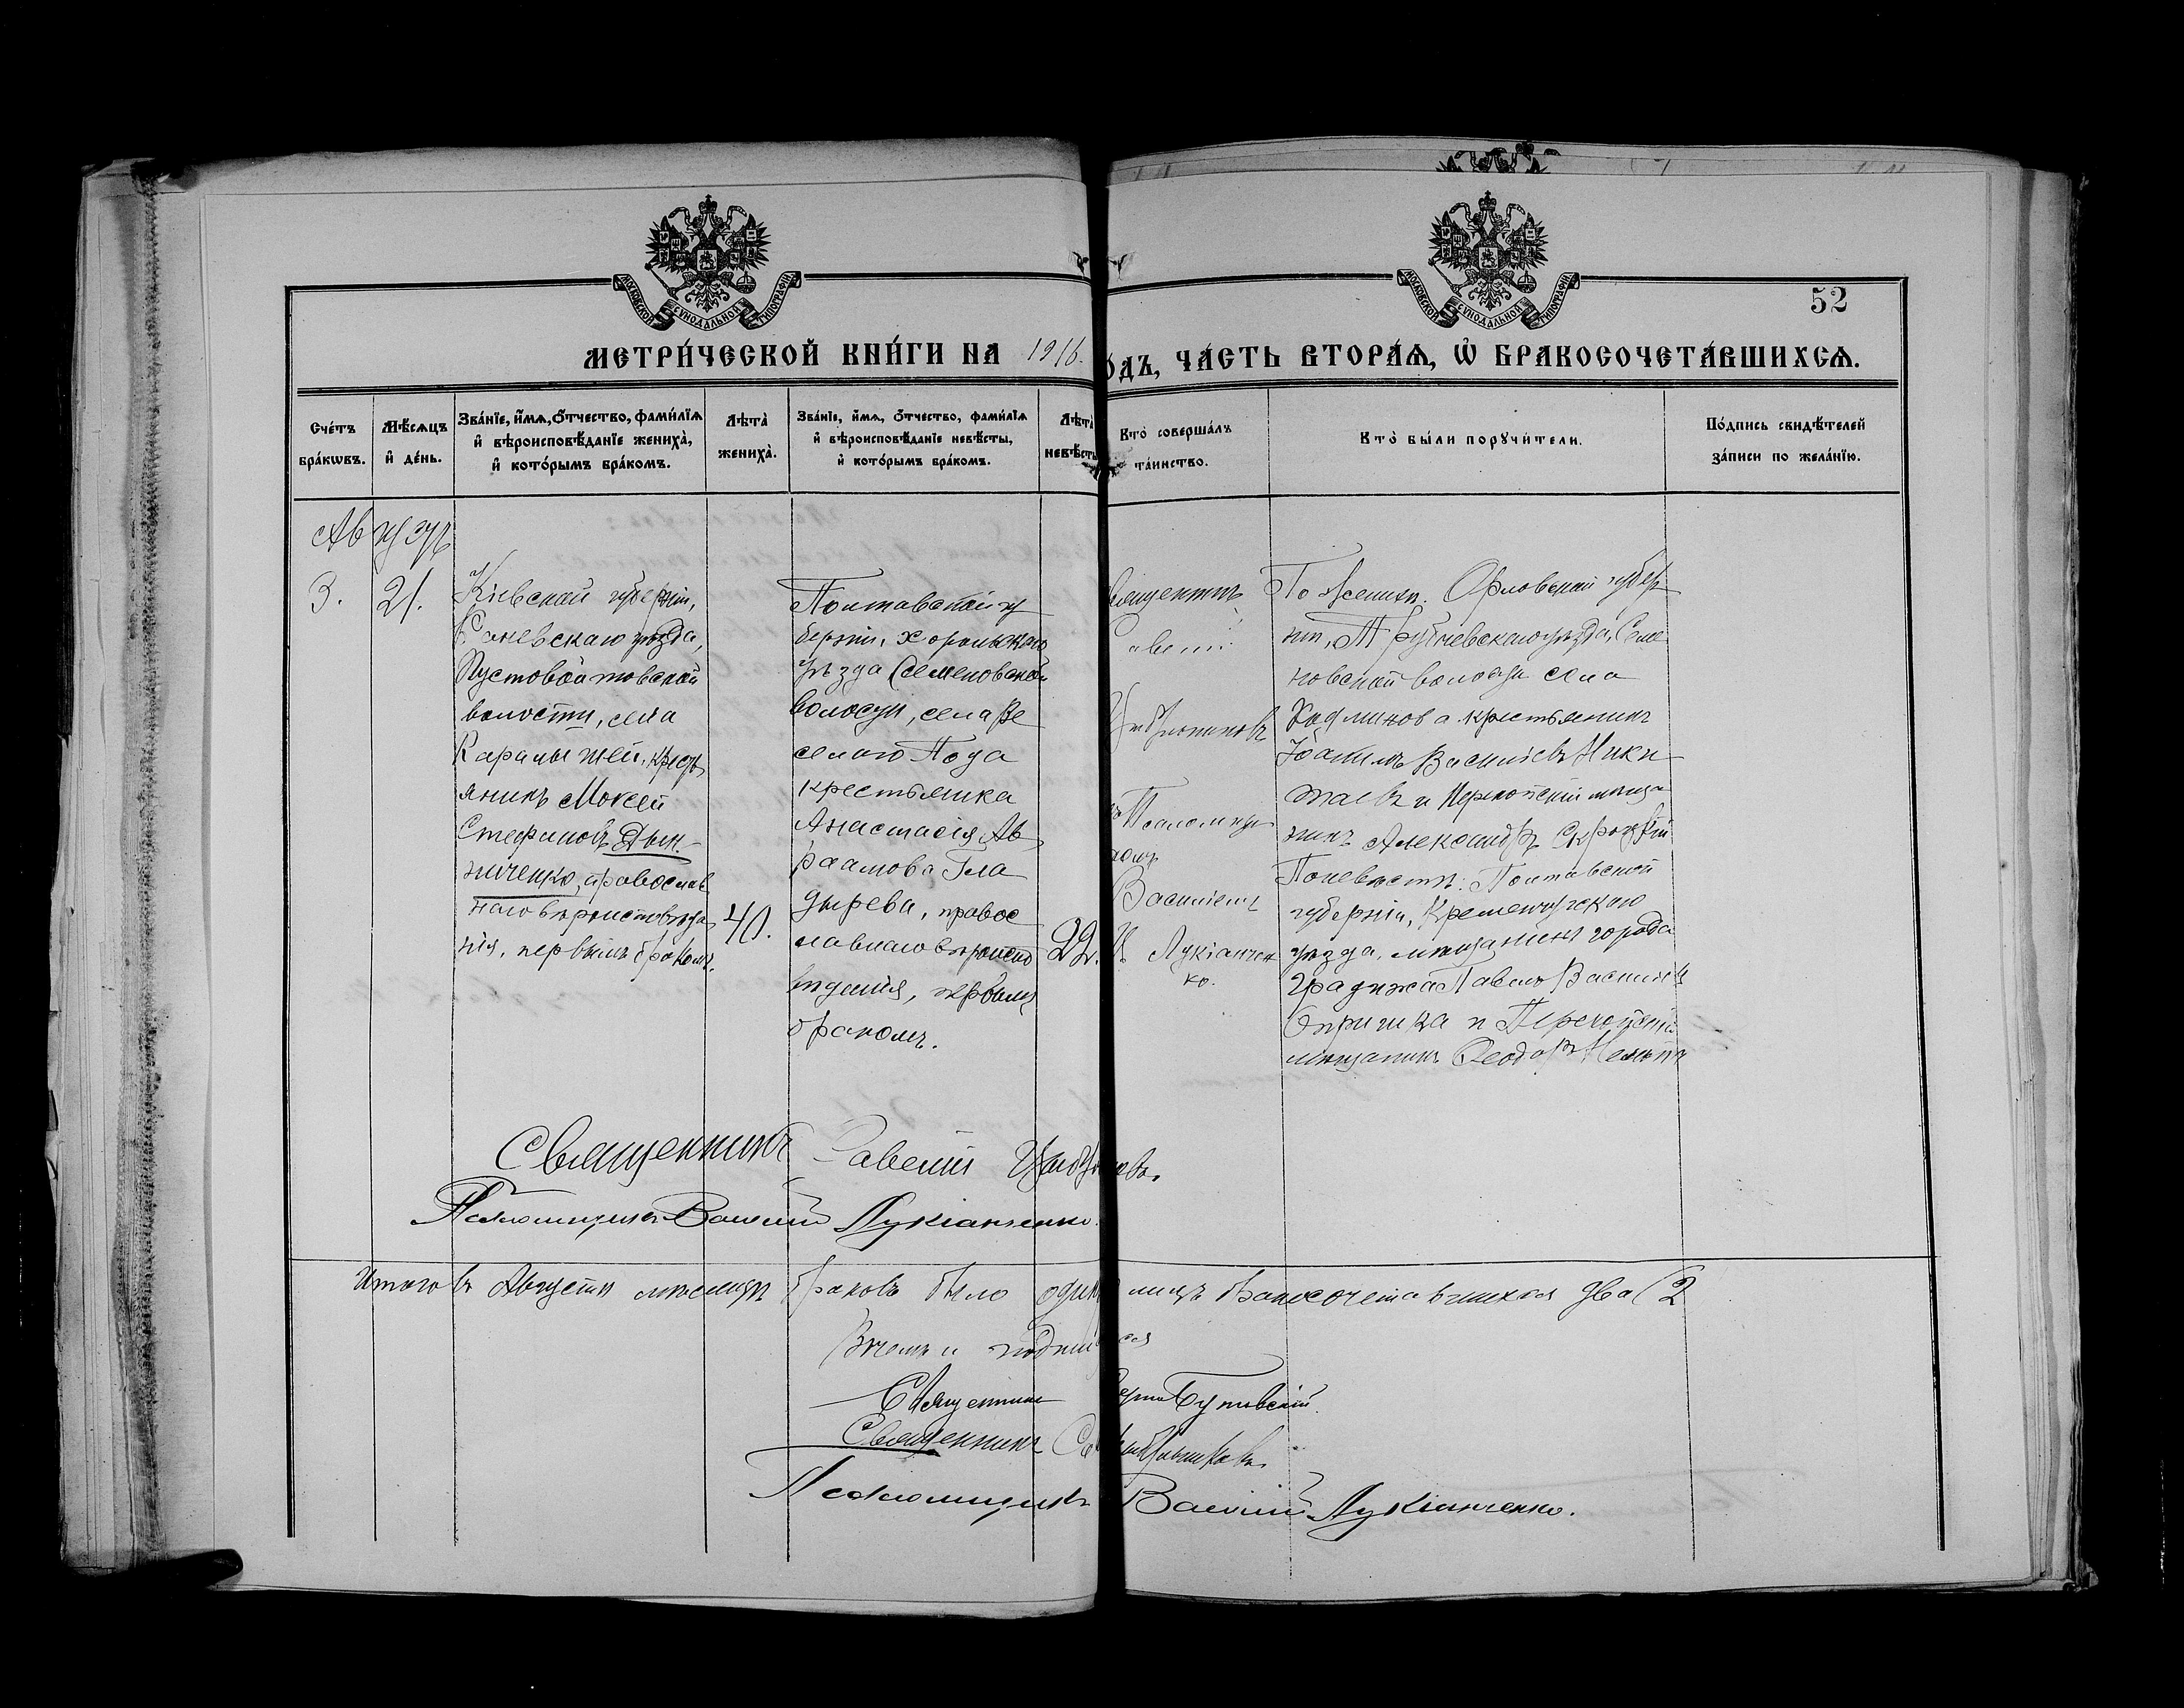 МОСКОВСКОЙ СѴНОДАЛЬНОЙ ТИПОГРАФІИ
МОСКОВСКОЙ СѴНОДАЛЬНОЙ ТИПОГРАФІИ
52
МЕТРИ́ЧЕСКОЙ КНИ́ГИ НА 1916.
О́ДЪ, ЧА́СТЬ ВТОРА́Ѧ, Ѡ҆ БРАКОСОЧЕТА́ВШИХСѦ.
Сче́тъ бра́кѡвъ.
Мѣ́сѧцъ и҆ де́нь.
Зва́нїе, и҆́мѧ, ѻ҆́тчество, фами́лїѧ
и҆ вѣроисповѣ́данїе жениха̀,
и҆ кото́рымъ бра́комъ.
Лѣта̀ жениха̀.
Зва́нїе, и҆́мѧ, ѻ҆́тчество, фами́лїѧ
и҆ вѣроисповѣ́данїе невѣ́сты,
и҆ кото́рымъ бра́комъ.
Лѣта̀ невѣ́сты
Кто̀ соверша́лъ
та́инство.
Кто̀ бы́ли порꙋчи́тели.
По́дпись свидѣ́телей
за́писи по жела́нїю.
Августъ
3.
21.
Кіевской губерніи,
Каневскаго уѣзда,
Пустовойтовской
волости, села
Карапышей, крестъ
янинъ Моисей
Стефановъ Дым-
ниченко, православ
наго вѣроисповѣда
нія, первымъ бракомъ.
40.
Полтавской гу
берніи, Хорольскаго
уѣзда Семеновской
волости, села Ве
селаго Пода
крестьянка
Анастасія Ав
раамова Гла
дырева, правос
лавнаго вѣроиспо
вѣданія, первымъ
бракомъ.
22.
вященникъ
Псаломщи
комъ
Василіемъ
Лукіанчен
ко.
По женихѣ: Орловской губер
ніи, Трубчевскаго уѣзда, Семе
новской волости села
крестьянинъ
Іоакимъ Василіевъ Ники
таевъ и Перекопскій мѣща
нинъ Александръ
По невѣстѣ: Полтавской
губерніи, Кременчугскаго
уѣзда, мѣщанинъ города
Градижа Павелъ Василіевъ
и Перекопскій
мѣщанинъ Ѳеодоръ
Священникъ Савелій
Псаломщикъ Василій Лукіанченко.
Итого въ Августѣ мѣсяцѣ браковъ было одинъ лицъ бракосочетавшихся два (2
В чемъ и подпи ся
Священникъ
Священникъ
Псаломщикъ Василій Лукіанченко.